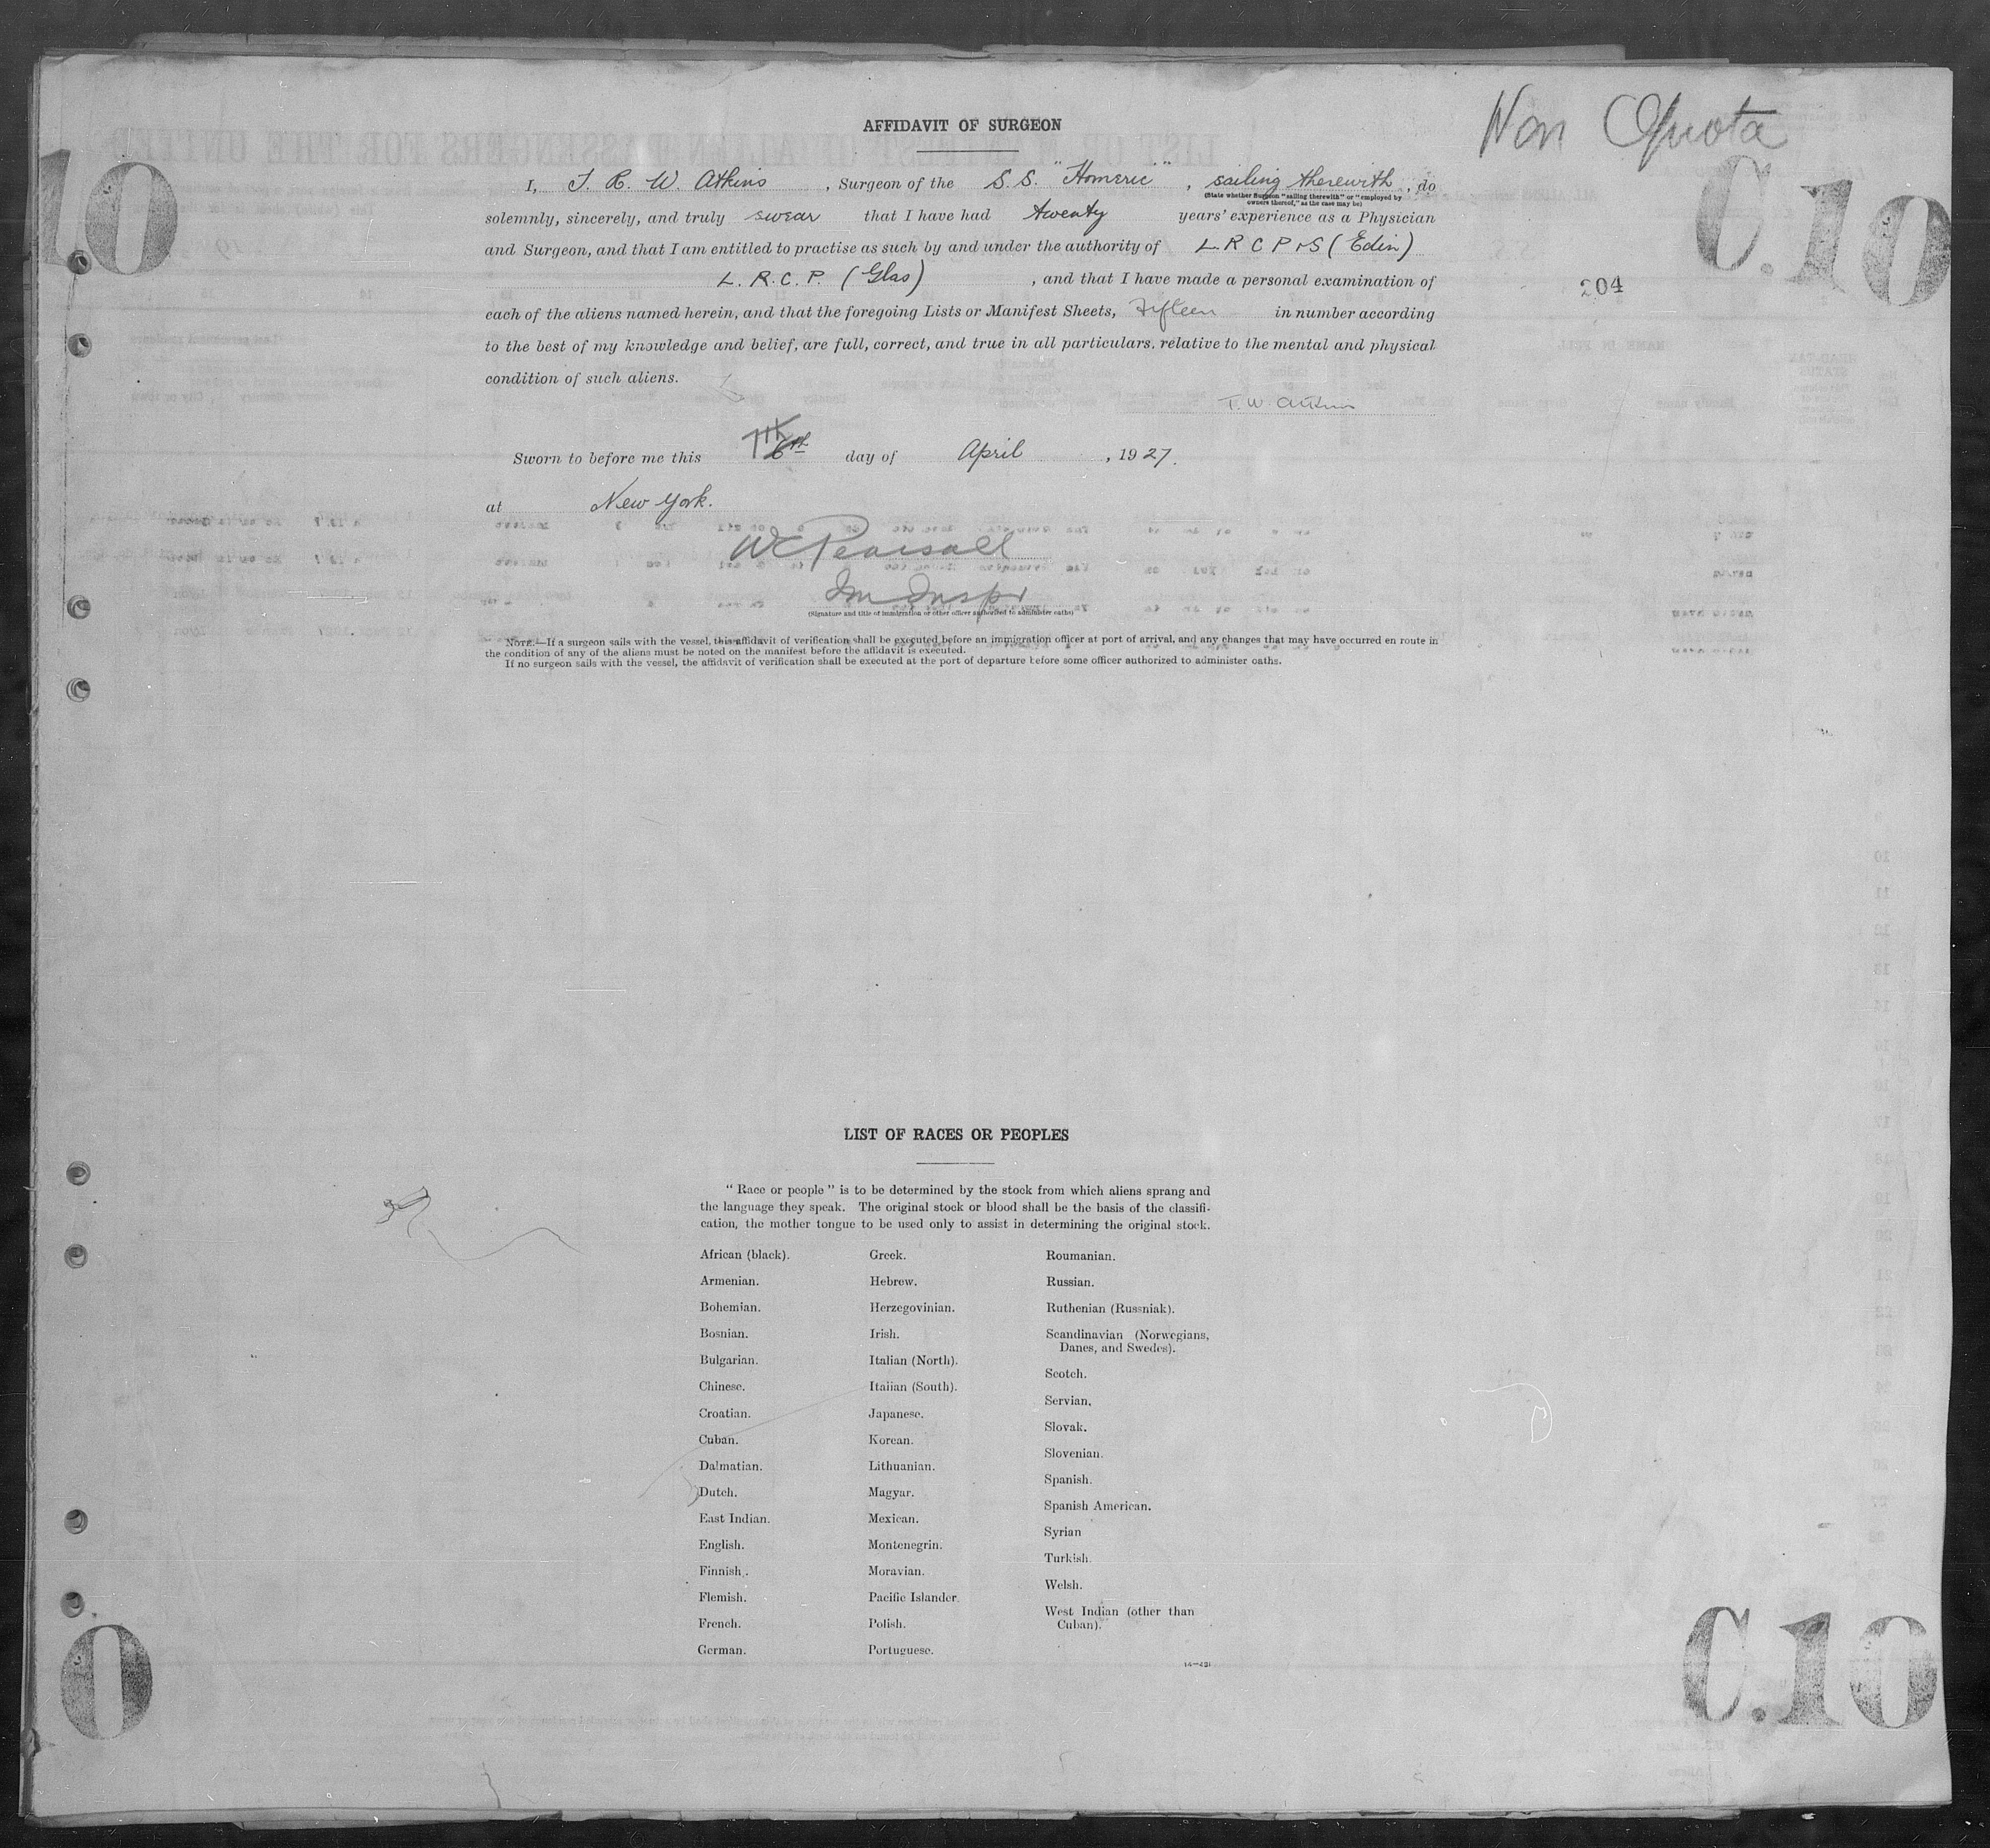 Non Quota
AFFIDAVIT OF SURGEON
10
C.10
I, T. R. W. Atkins, Surgeon of the S.S. "Homeric", sailing therewith, do
(State whether Surgeon "sailing therewith" or "employed by
owners thereof," as the case may be)
solemnly, sincerely, and truly swear that I have had twenty years' experience as a Physician
and Surgeon, and that I am entitled to practise as such by and under the authority of L.R C P & S (Edin)
L. R. C. P. (Glas), and that I have made a personal examination of
204
each of the aliens named herein, and that the foregoing Lists or Manifest Sheets, Fifteen in number according
to the best of my knowledge and belief, are full, correct, and true in all particulars, relative to the mental and physical
condition of such aliens.
T. W. Atkins
Sworn to before me this 7th 6th day of April, 1927.
at New York.
W C Pearsall
Im Inspr
(Signature and title of immigration or other officer authorized to administer oaths)
NOTE.—If a surgeon sails with the vessel, this affidavit of verification shall be executed before an immigration officer at port of arrival, and any changes that may have occurred en route in
the condition of any of the aliens must be noted on the manifest before the affidavit is executed.
If no surgeon sails with the vessel, the affidavit of verification shall be executed at the port of departure before some officer authorized to administer oaths.
LIST OF RACES OR PEOPLES
"Race or people" is to be determined by the stock from which aliens sprang and
the language they speak. The original stock or blood shall be the basis of the classifi-
cation, the mother tongue to be used only to assist in determining the original stock.
African (black).
Armenian.
Bohemian.
Bosnian.
Bulgarian.
Chinese.
Croatian.
Cuban.
Dalmatian.
Dutch.
East Indian.
English.
Finnish.
Flemish.
French.
German.
Greek.
Hebrew.
Herzegovinian.
Irish.
Italian (North).
Italian (South).
Japanese.
Korean.
Lithuanian.
Magyar.
Mexican.
Montenegrin.
Moravian.
Pacific Islander.
Polish.
Portuguese.
Roumanian.
Russian.
Ruthenian (Russniak).
Scandinavian (Norwegians,
Danes, and Swedes).
Scotch.
Servian.
Slovak.
Slovenian.
Spanish.
Spanish American.
Syrian
Turkish.
Welsh.
West Indian (other than
Cuban).
0
C.10